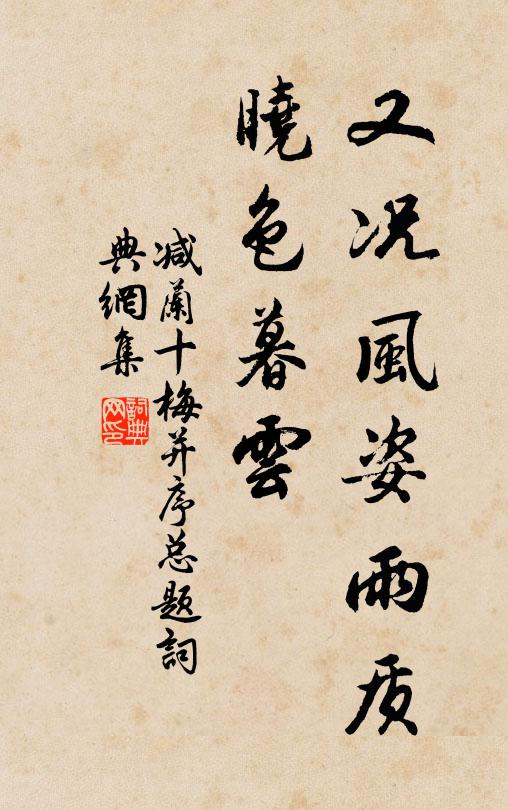 又况風姿雨质
曉色暮雲
减蘭十梅并序总题詞
典網集
詞典網印